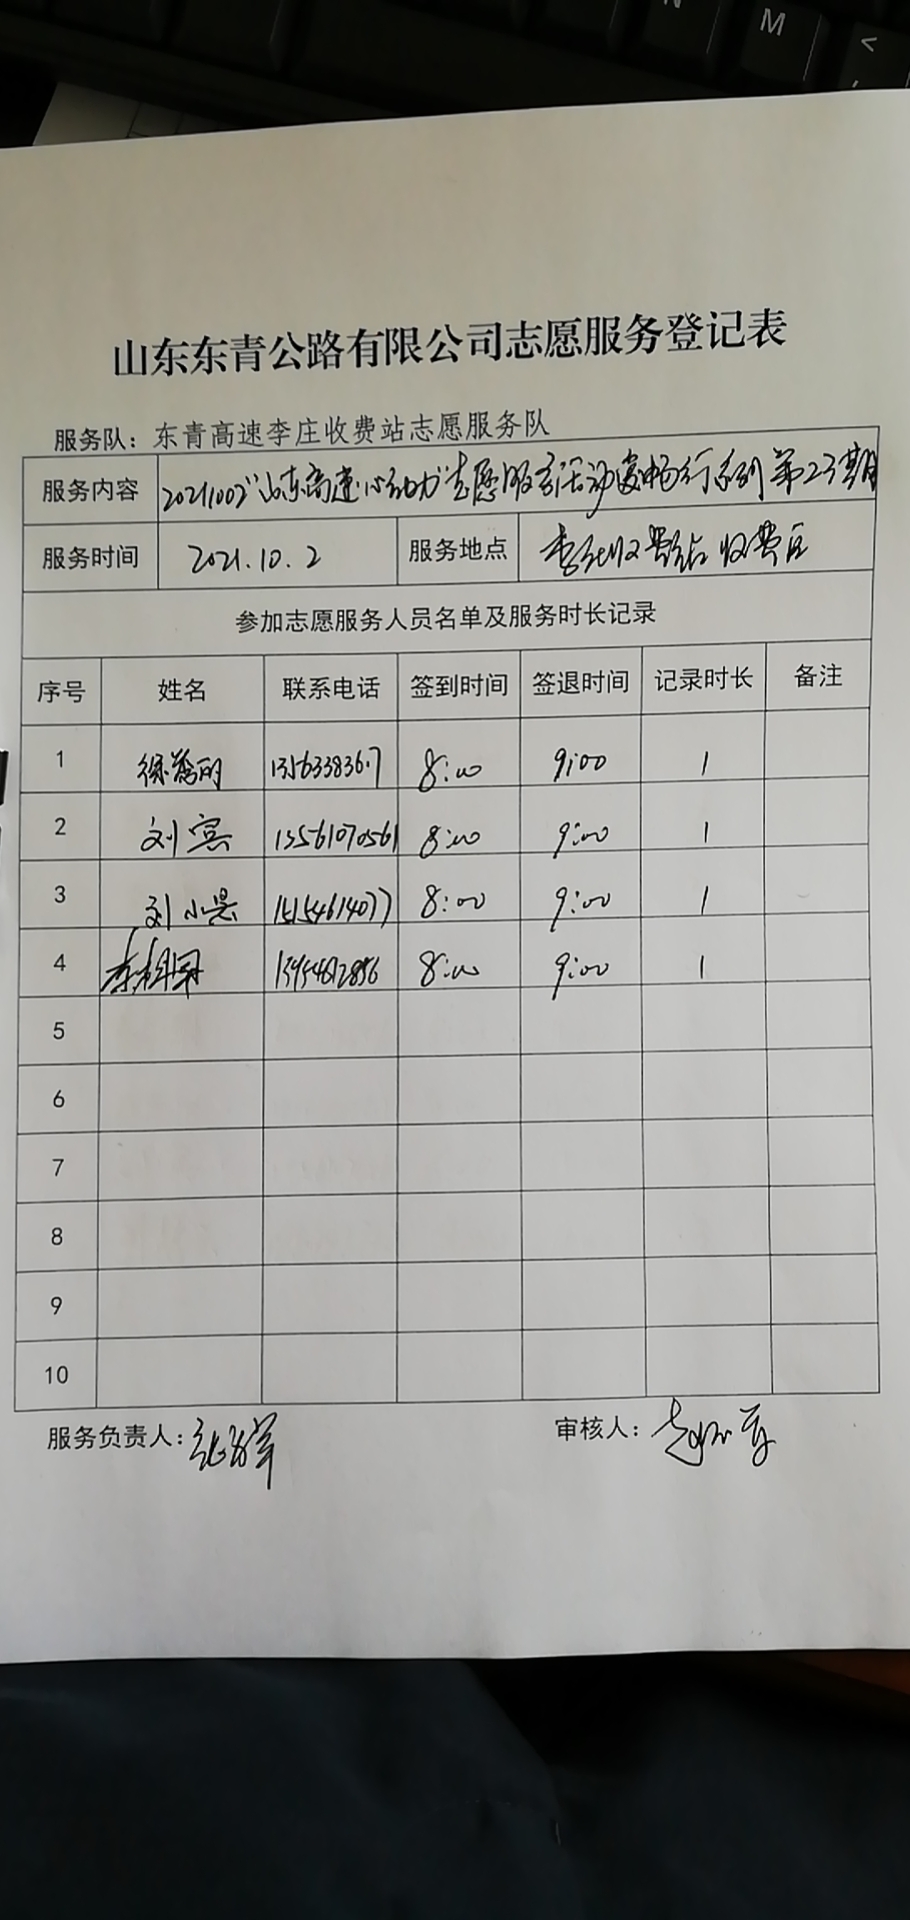 N M <
山东东青公路有限公司志愿服务登记表
服务队：东青高速李庄收费站志愿服务队
服务内容 20211002"山东高速心动力"志愿服务活动爱畅行系列第23期
服务时间 2021.10.2 服务地点 李庄收费站收费区
参加志愿服务人员名单及服务时长记录
序号 姓名 联系电话 签到时间 签退时间 记录时长 备注
1 8:00 9:00 1
2 刘宾 13561070561 8:00 9:00 1
3 刘小 15154614077 8:00 9:00 1
4 8:00 9:00 1
5
6
7
8
9
10
服务负责人： 审核人：